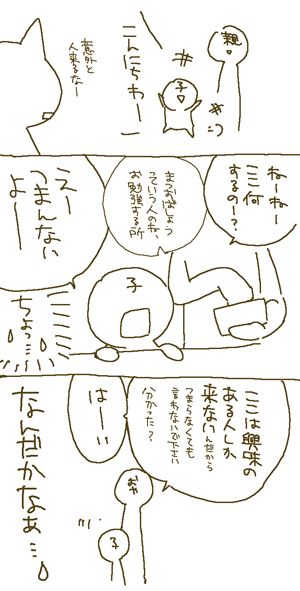 親
こんにちわー
子
意外と
人来るなー
ねーねー
ここ何
するのー?
まつおばしょう
っていう人のね、
お勉強する所
えー
つまんない
よー
子
ちょっ…
ここは興味の
ある人しか
来ないんだから
つまらなくても
言わないで下さい
分かった?
はーい
おや
子
なんだかなぁ…